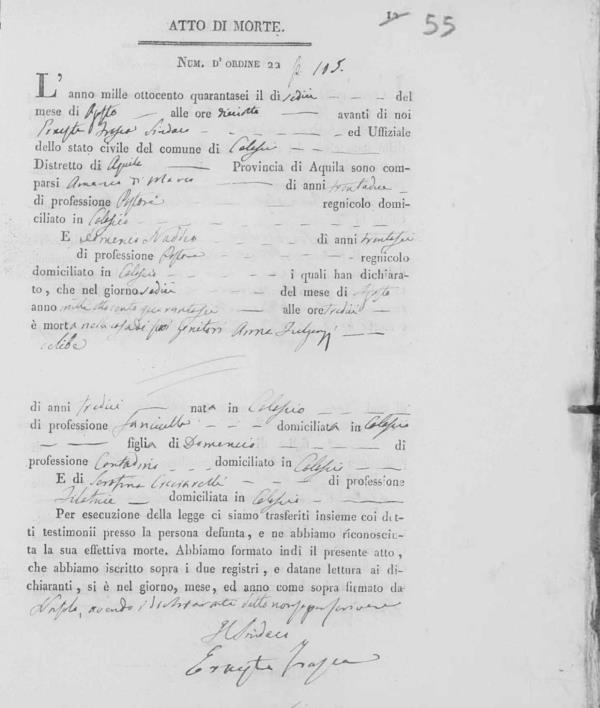 55
ATTO DI MORTE.
NUM. D' ORDINE 22
L' anno mille ottocento quarantasei il dì sedici del
mese di Agosto alle ore diciotto avanti di noi
Sindaco ed Uffiziale
dello stato civile del comune di
Distretto di Aquila Provincia di Aquila sono com-
parsi di Marco di anni trentadue
di professione Pastore regnicolo domi-
ciliato in
E Domenico di anni trentasei
di professione Pastore regnicolo
domiciliato in i quali han dichiara-
to, che nel giorno sedici del mese di Agosto
anno mille ottocento quarantasei alle ore tredici
è morta nella casa di suoi genitori Anna
celibe
di anni tredici nata in
di professione domiciliata in
figlia di Domenico di
professione Contadino domiciliato in
E di Serafina di professione
Filatrice domiciliata in
Per esecuzione della legge ci siamo trasferiti insieme coi det-
ti testimonii presso la persona defunta, e ne abbiamo riconosciu-
ta la sua effettiva morte. Abbiamo formato indi il presente atto,
che abbiamo iscritto sopra i due registri, e datane lettura ai di-
chiaranti, si è nel giorno, mese, ed anno come sopra firmato da
avendo i dichiaranti detto non saper scrivere
Il Sindaco